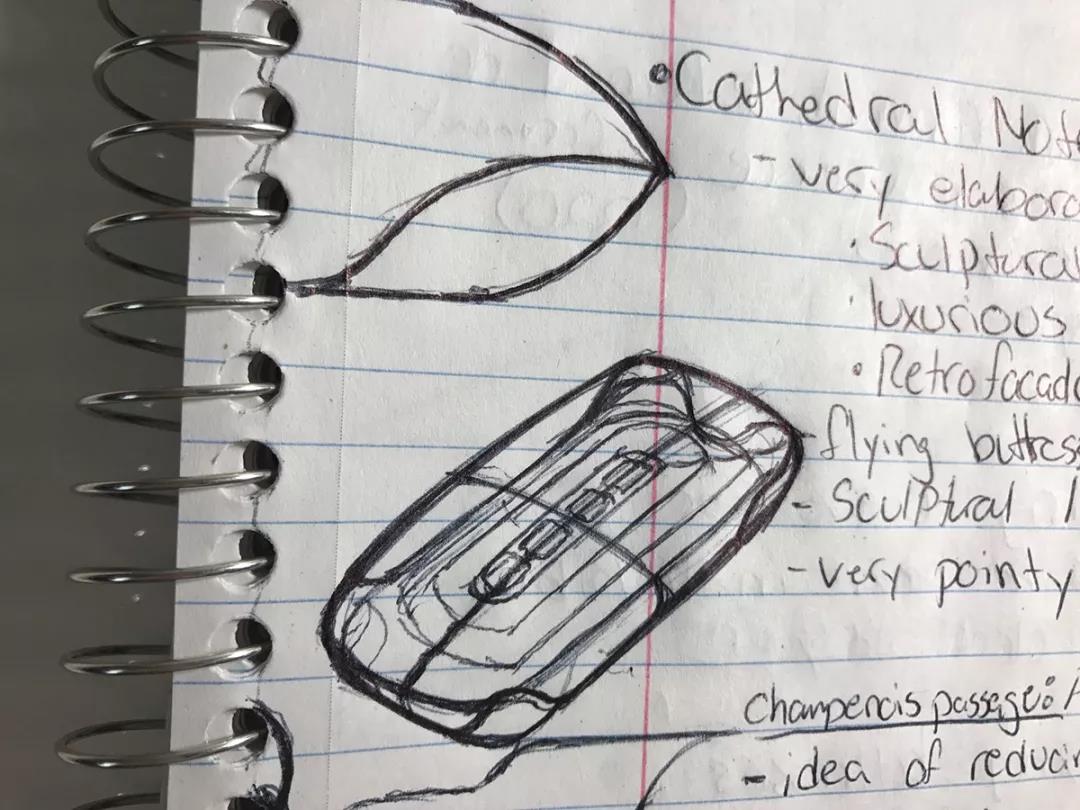 •Cathedral Not
- very elabora
•Sculptural
•luxurious
•Retrofacad
-flying buttess
- Sculptural
-very pointy
champencis passage:
- idea of reducin